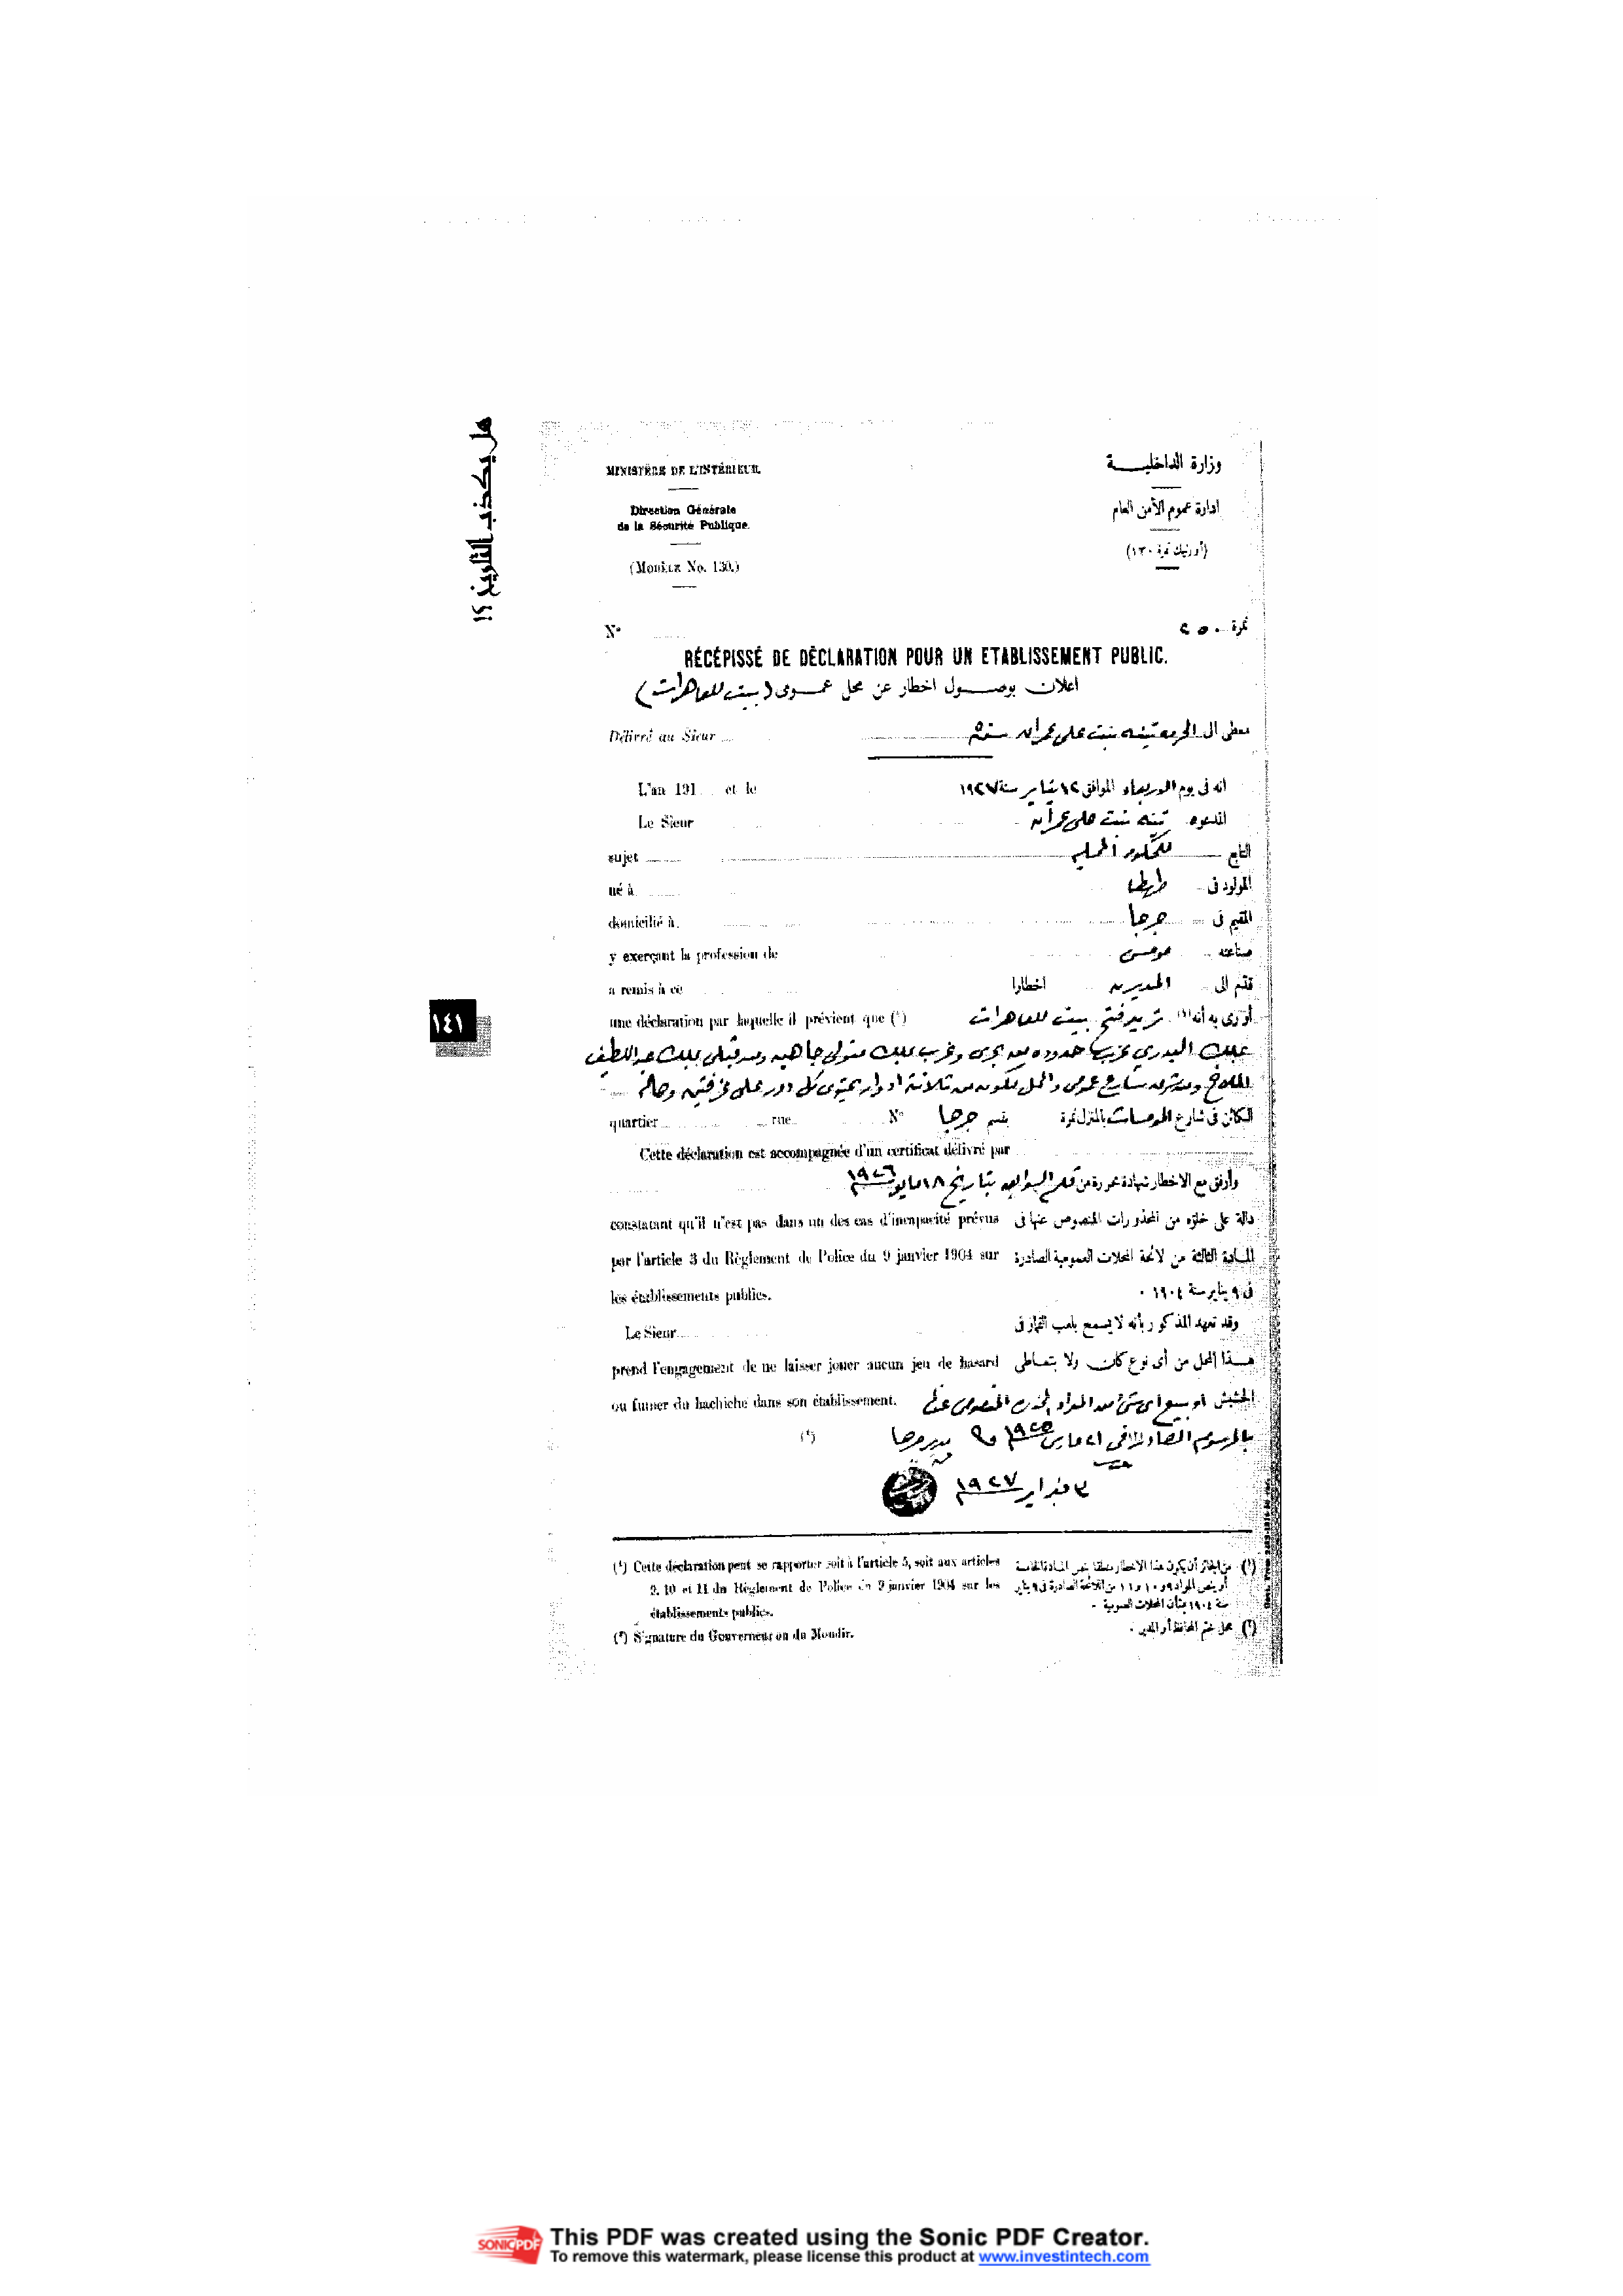 هل يكذب التاريخ ؟!
MINISTÈRE DE L'INTÉRIEUR.
وزارة الداخليـــة
Direction Générale
de la Sécurité Publique.
ادارة عموم الأمن العام
(Modèle No. 130.)
(أورنيك نمرة ١٣٠)
Nº
نمرة
RÉCÉPISSÉ DE DÉCLARATION POUR UN ETABLISSEMENT PUBLIC.
اعلان بوصــول اخطار عن محل عمــومى (بيت للعاهرات)
Délivré au Sieur
معطى الى الحرمة بنت على عمران
L'an 191 et le
انه فى يوم الاربعاء الموافق ١٢ يناير سنة ١٩٢٧
Le Sieur
المدعوه بنت على عمران
sujet
التابع للحكومة المحلية
né à
المولود فى طهطا
domicilié à
المقيم فى جرجا
y exerçant la profession de
صناعته مومس
a remis à ce
قدم الى المديرية اخطارا
une déclaration par laquelle il prévient que (¹)
أورى به أنه (١) تريد فتح بيت للعاهرات
بملك البدرى حدوده من بحرى وغرب بملك متولى جاهين ومن قبلى بملك عبد اللطيف
الملاخ ومن شرق شارع عمومى والمحل مكون من ثلاثة ادوار يحتوى كل دور على غرفتين وصالة
quartier rue Nº
الكائن فى شارع المومسات بالمنزل نمرة بقسم جرجا
Cette déclaration est accompagnée d'un certificat délivré par
وأرفق مع الاخطار شهادة محررة من قلم السوابق بتاريخ ١٨ مايو ١٩٢٦
constatant qu'il n'est pas dans un des cas d'incapacité prévus
دالة على خلوّه من المحذورات المنصوص عنها فى
par l'article 3 du Règlement de Police du 9 janvier 1904 sur
المادة الثالثة من لائحة المحلات العمومية الصادرة
les établissements publics.
فى ٩ يناير سنة ١٩٠٤ .
Le Sieur
وقد تعهد المذكور بأنه لا يسمح بلعب القمار فى
prend l'engagement de ne laisser jouer aucun jeu de hasard
هــذا المحل من أى نوع كان ولا بتعاطى
ou fumer du hachiche dans son établissement.
الحشيش أو بيع أى شئ من المواد المخدرة المنصوص عنها
بالمرسوم الصادر فى ٢١ مارس ١٩٢٥
(²)
مدير جرجا
٣ فبراير ١٩٢٧
(¹) Cette déclaration peut se rapporter soit à l'article 5, soit aux articles
9, 10 et 11 du Règlement de Police du 9 janvier 1904 sur les
établissements publics.
(²) Signature du Gouverneur ou du Moudir.
(١) من الجائز أن يكون هذا الاخطار متعلقا بنص المادة الخامسة
أو بنص المواد ٩ و ١٠ و ١١ من اللائحة الصادرة فى ٩ يناير
سنة ١٩٠٤ بشأن المحلات العمومية .
(٢) محل ختم المحافظ أو المدير .
١٤١
SONICPDF
This PDF was created using the Sonic PDF Creator.
To remove this watermark, please license this product at www.investintech.com